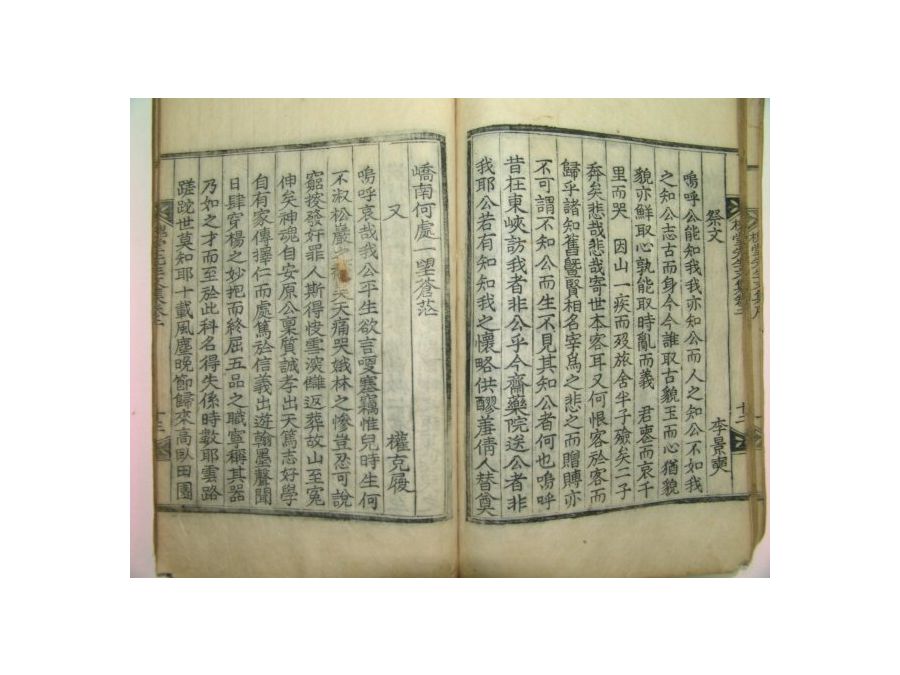 祭文
李景奭
嗚呼公能知我我亦知公而人之知公不如我
之知公志古而身今今誰取古貌玉而心猶貌
貌亦鮮取心孰能取時亂而義 君喪而哀千
里而哭 因山一疾而歿旅舍半子殮矣二子
奔矣悲哉悲哉寄世本客耳又何恨客於客而
歸乎諸知舊曁賢相名宰為之悲之而贈賻亦
不可謂不知公而生不見其知公者何也嗚呼
昔在東峽訪我者非公乎今齋藥院送公者非
我耶公若有知知我之懷略供醪羞倩人替奠
嶠南何處一望蒼茫
又
權克履
嗚呼哀哉我公平生欲言哽塞竊惟兒時生何
不淑松巖之 天天痛哭娥林之慘豈忍可說
窮按發奸罪人斯得快雪深讎返葬故山至冤
伸矣神魂自安原公稟質誠孝出天篤志好學
自有家傳擇仁而處篤於信義出遊翰墨聲聞
日肆穿楊之妙抱而終屈五品之職寧稱其器
乃如之才而至於此科名得失係時數耶雲路
蹉跎世莫知耶十載風塵晩節歸來高臥田園